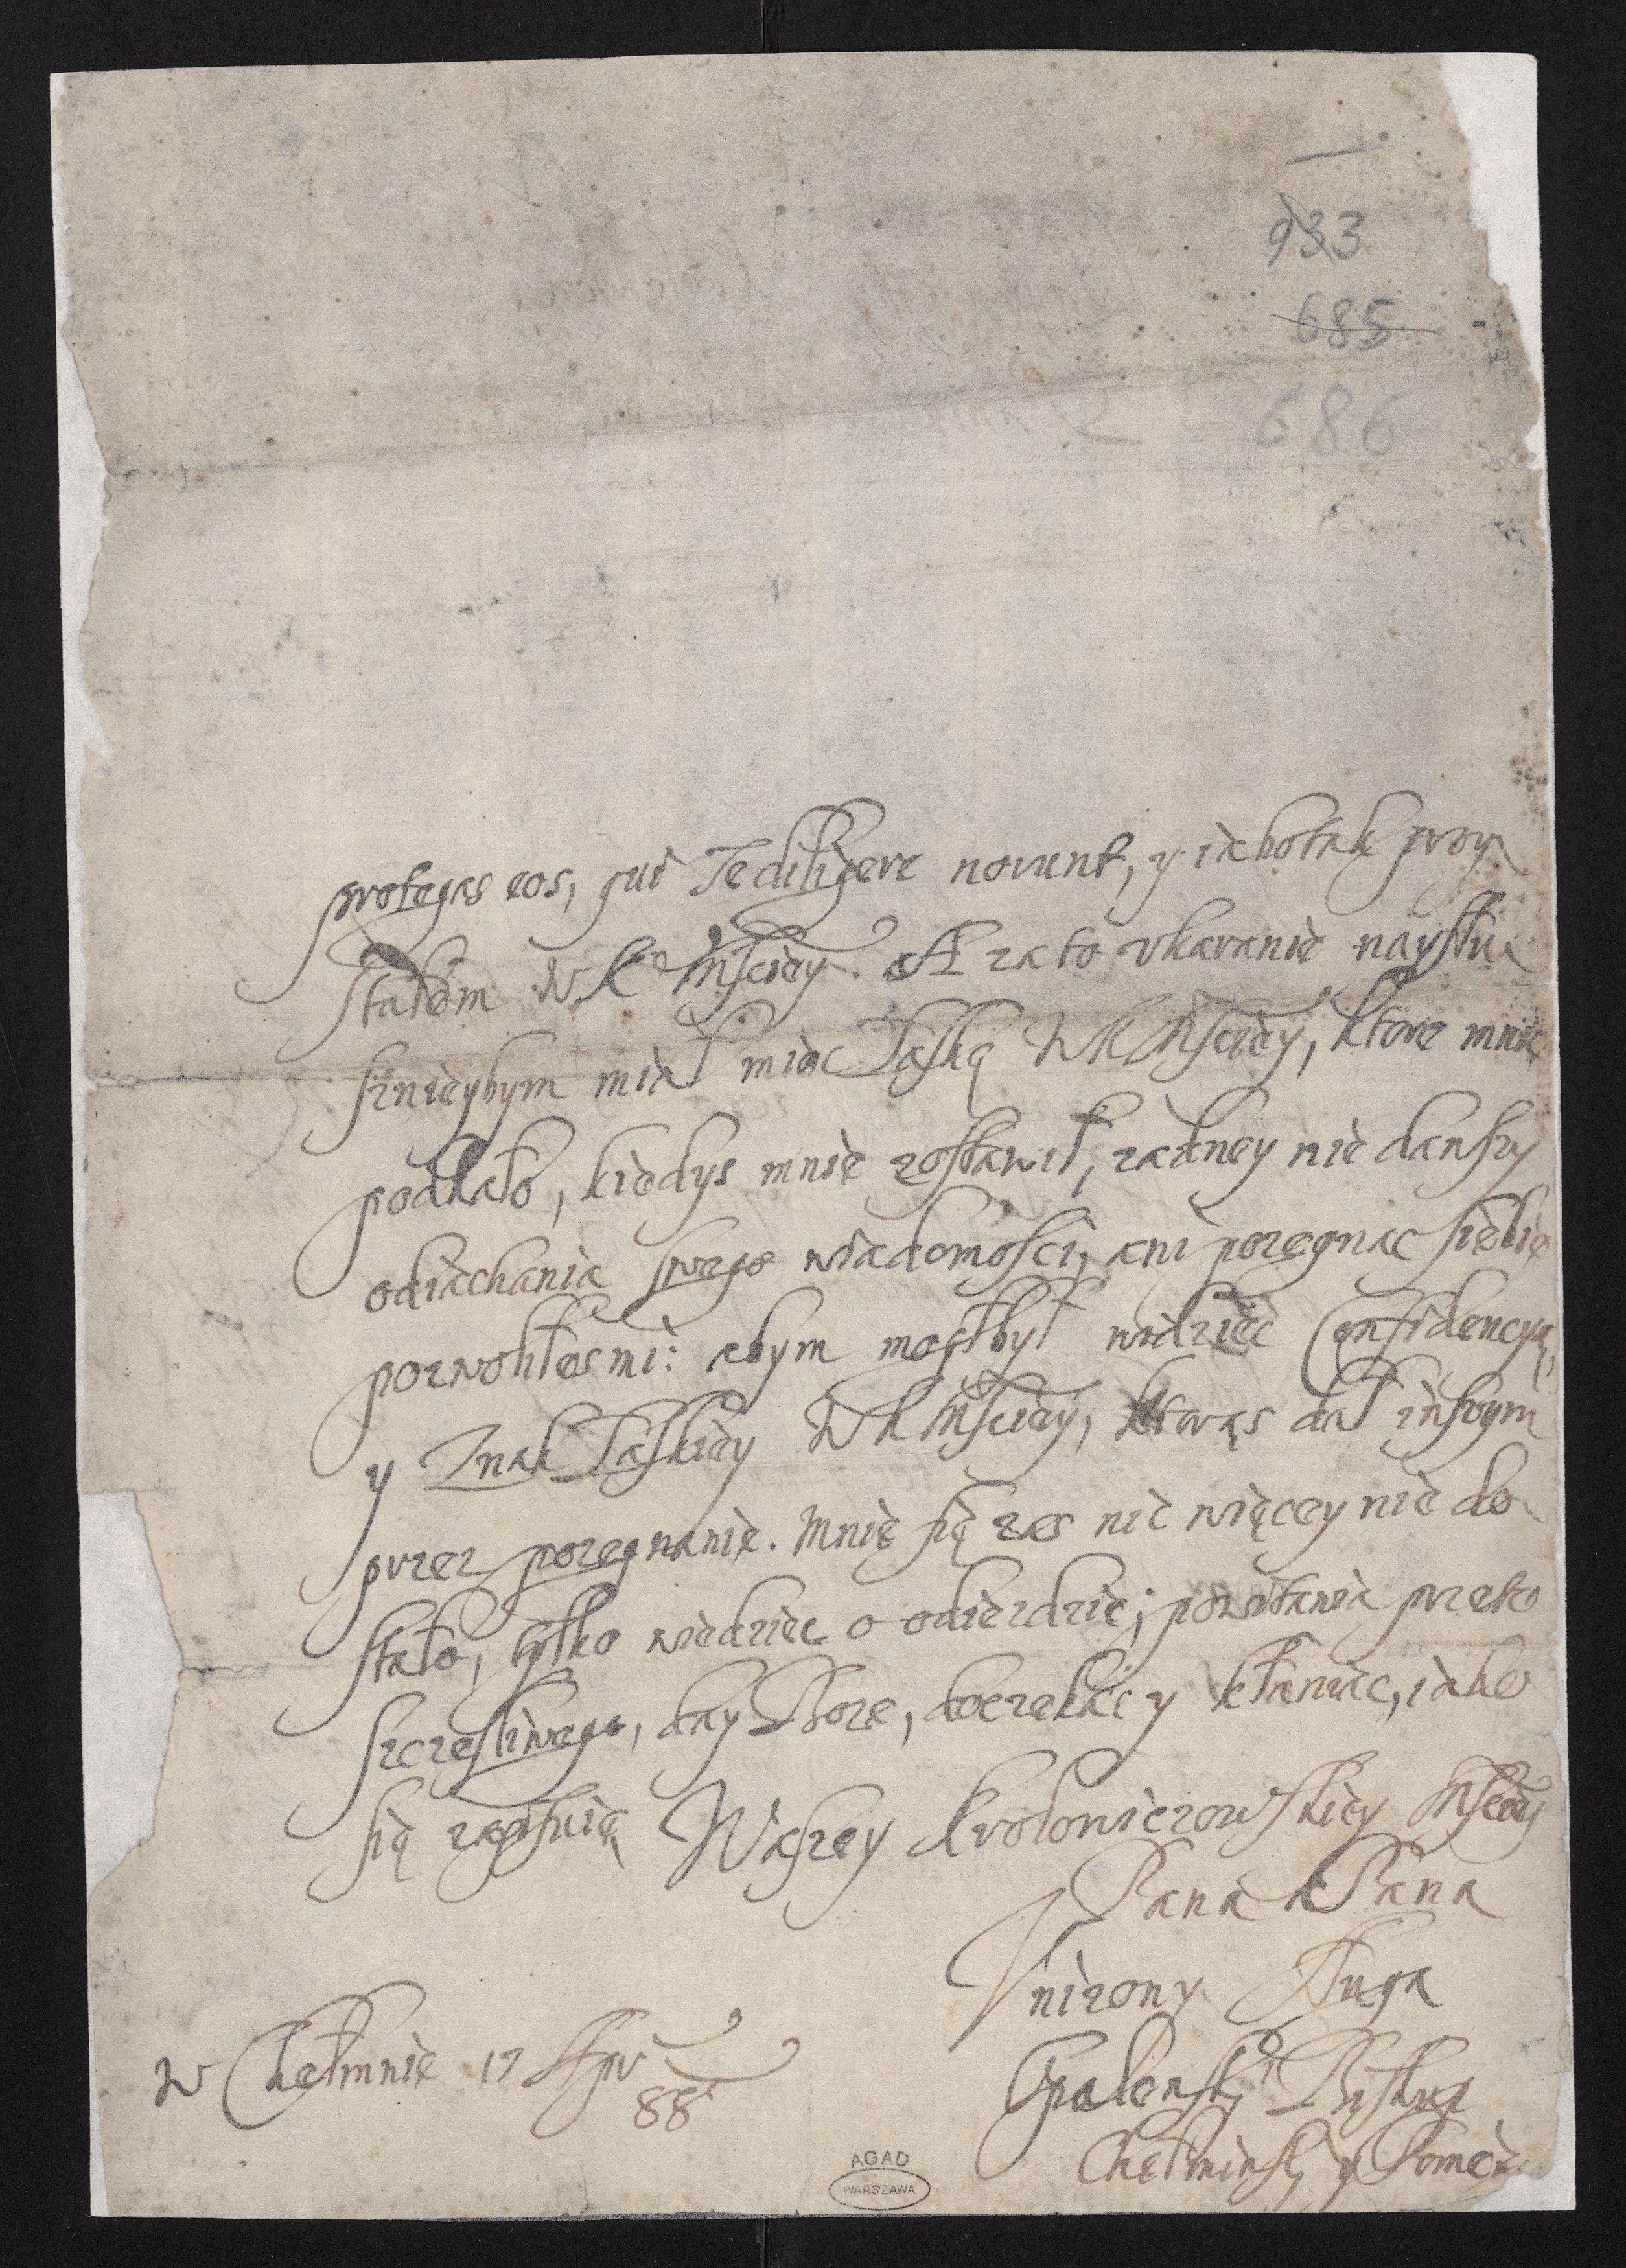 933
685
686
protegas eos, qui Te diligere norunt, y iakotak przy
stałem W K Msciey. A zato vkaranie naysłu
sznieybym miał miec Łaskę W K Msciey, ktore mnie
podkało, kiedys mnie zostawił, żadney nie dawszy
odiachania swego wiadomosci, ani pozegnac siebie
pozwoliłes mi: abym mogł był widziec Confidencyą,
y Znak Łaskiey W K Msciey, ktorąs dał inszym
przez pozegnanie. Mnie się zas nic więcey nie do
stało, tylko wiedziec o odiezdzie; powitania przeto
szczesliwego, day Boze, doczekac y kłaniac, iako
się zapisuię Waszey Krolowiczowskiey Msciey
Pana a Pana
Vnizony Sługa
Opalenski Biskup
Chełminski y Pomez
W Chełmnie 17 Apr
88
AGAD
WARSZAWA